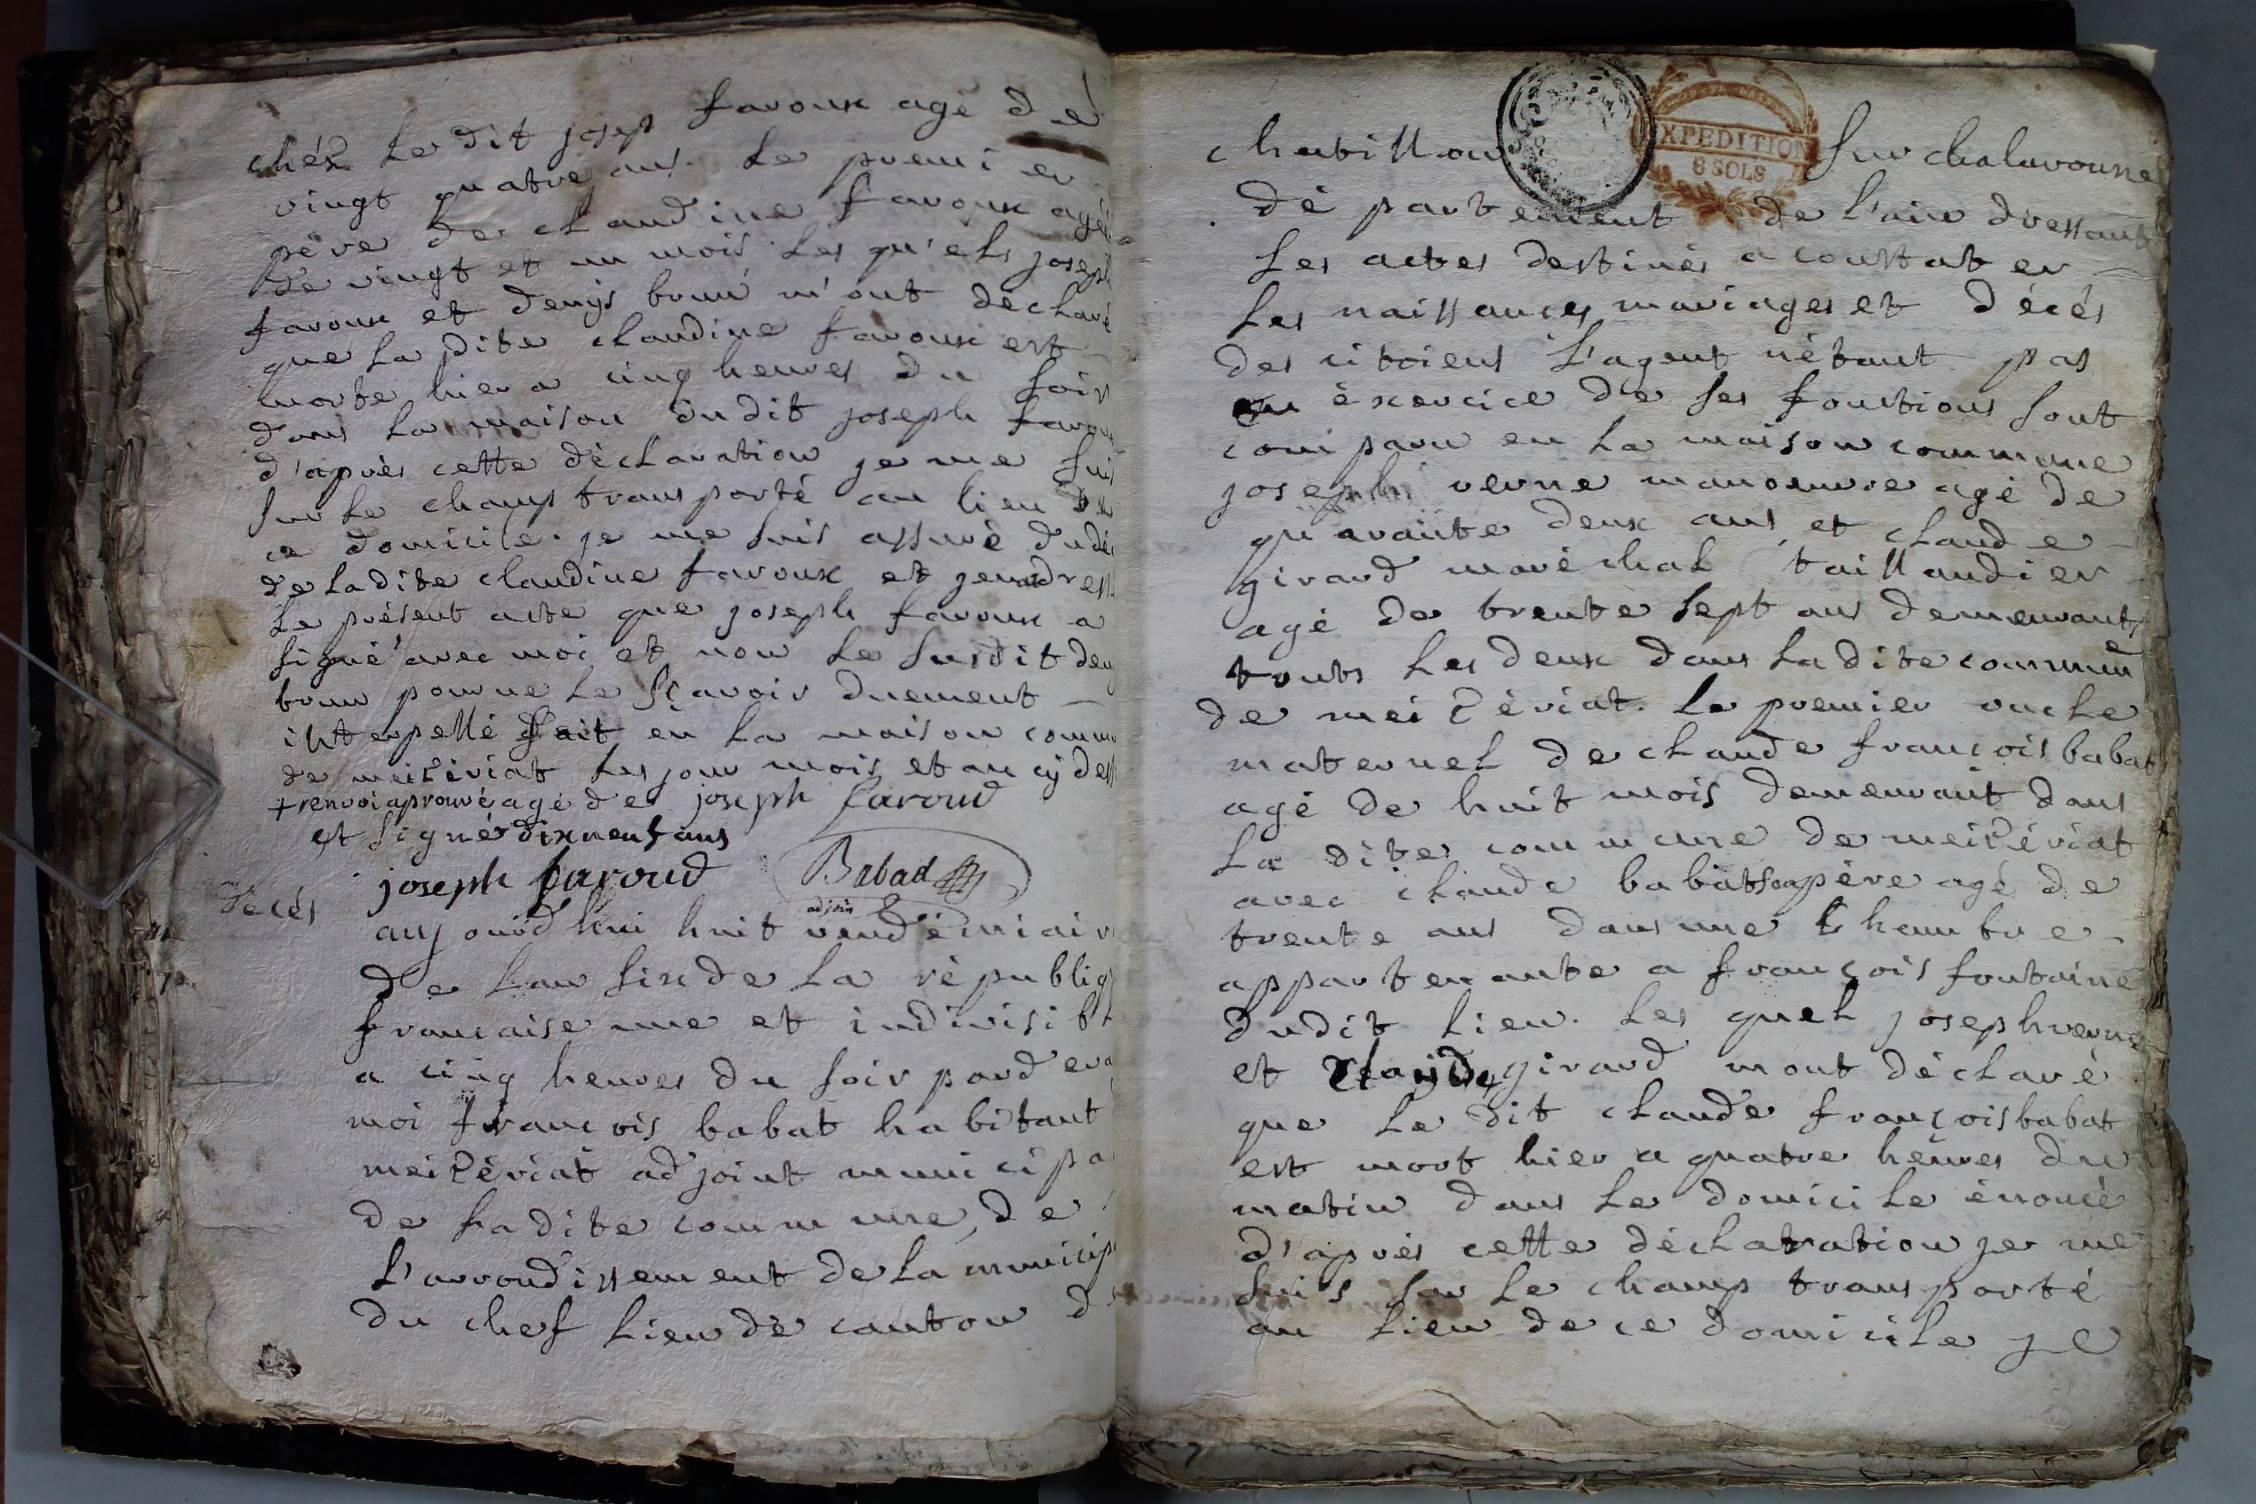 chéz le dit josep favoux agé de
vingt quatre ans. le premier
père de claudine favoux agée
de vingt et un mois. les qu'els joseph
favoux et denys brun m'ont déclaré
que la dite claudine favoux est
morte hier a cinq heures du soir
dans la maison du dit joseph favoux
d'après cette déclaration je me suis
sur le champ transporté au lieu de
ce domicile. je me suis assuré du dé
de la dite claudine favoux et jen ai dress
le présent acte que joseph favoux a
signé avec moi et non le susdit deny
brun pour ne le sçavoir duement
interpellé fait en la maison commu
de meizériat les jour mois et an cÿ dess
+ renvoi aprouvé agé de joseph faroud
et signé dix neuf ans
joseph faroud Babad
adjoin
décés
aujourd'hui huit vendémiair
de l'an six de la républiq
française une et indivisibl
a cinq heures du soir pardeva
moi françois babat habitant
meizériat adjoint municipa
de la dite commune, de
l'arrondissement de la municip
du chef lieu de canton d
chatillon sur chalaronne
EXPEDITION
8 SOLS
département de l'ain dressant
les actes destinés a constater
les naissances mariages et décés
des citoiens l'agent nétant pas
en éxercice de ses fonctions sont
comparu en la maison commune
joseph verne manoeuvre agé de
quarante deux ans, et claude
girard maréchal taillandier
agé de trente sept ans demeurants
touts les deux dans la dite commune
de meizériat. le premier oncle
maternel de claude françois babat
agé de huit mois demeurant dans
la dite commune de meizériat
avec claude babat son père agé de
trente ans dans une chambre
appartenante a françois fontaine
dudit lieu. les quel joseph verne
et claude girard mont déclaré
que le dit claude françois babat
est mort hier a quatre heures du
matin dans le domicile énoncé
d'après cette déclaration je me
suis sur le champ transporté
au lieu de ce domicile je